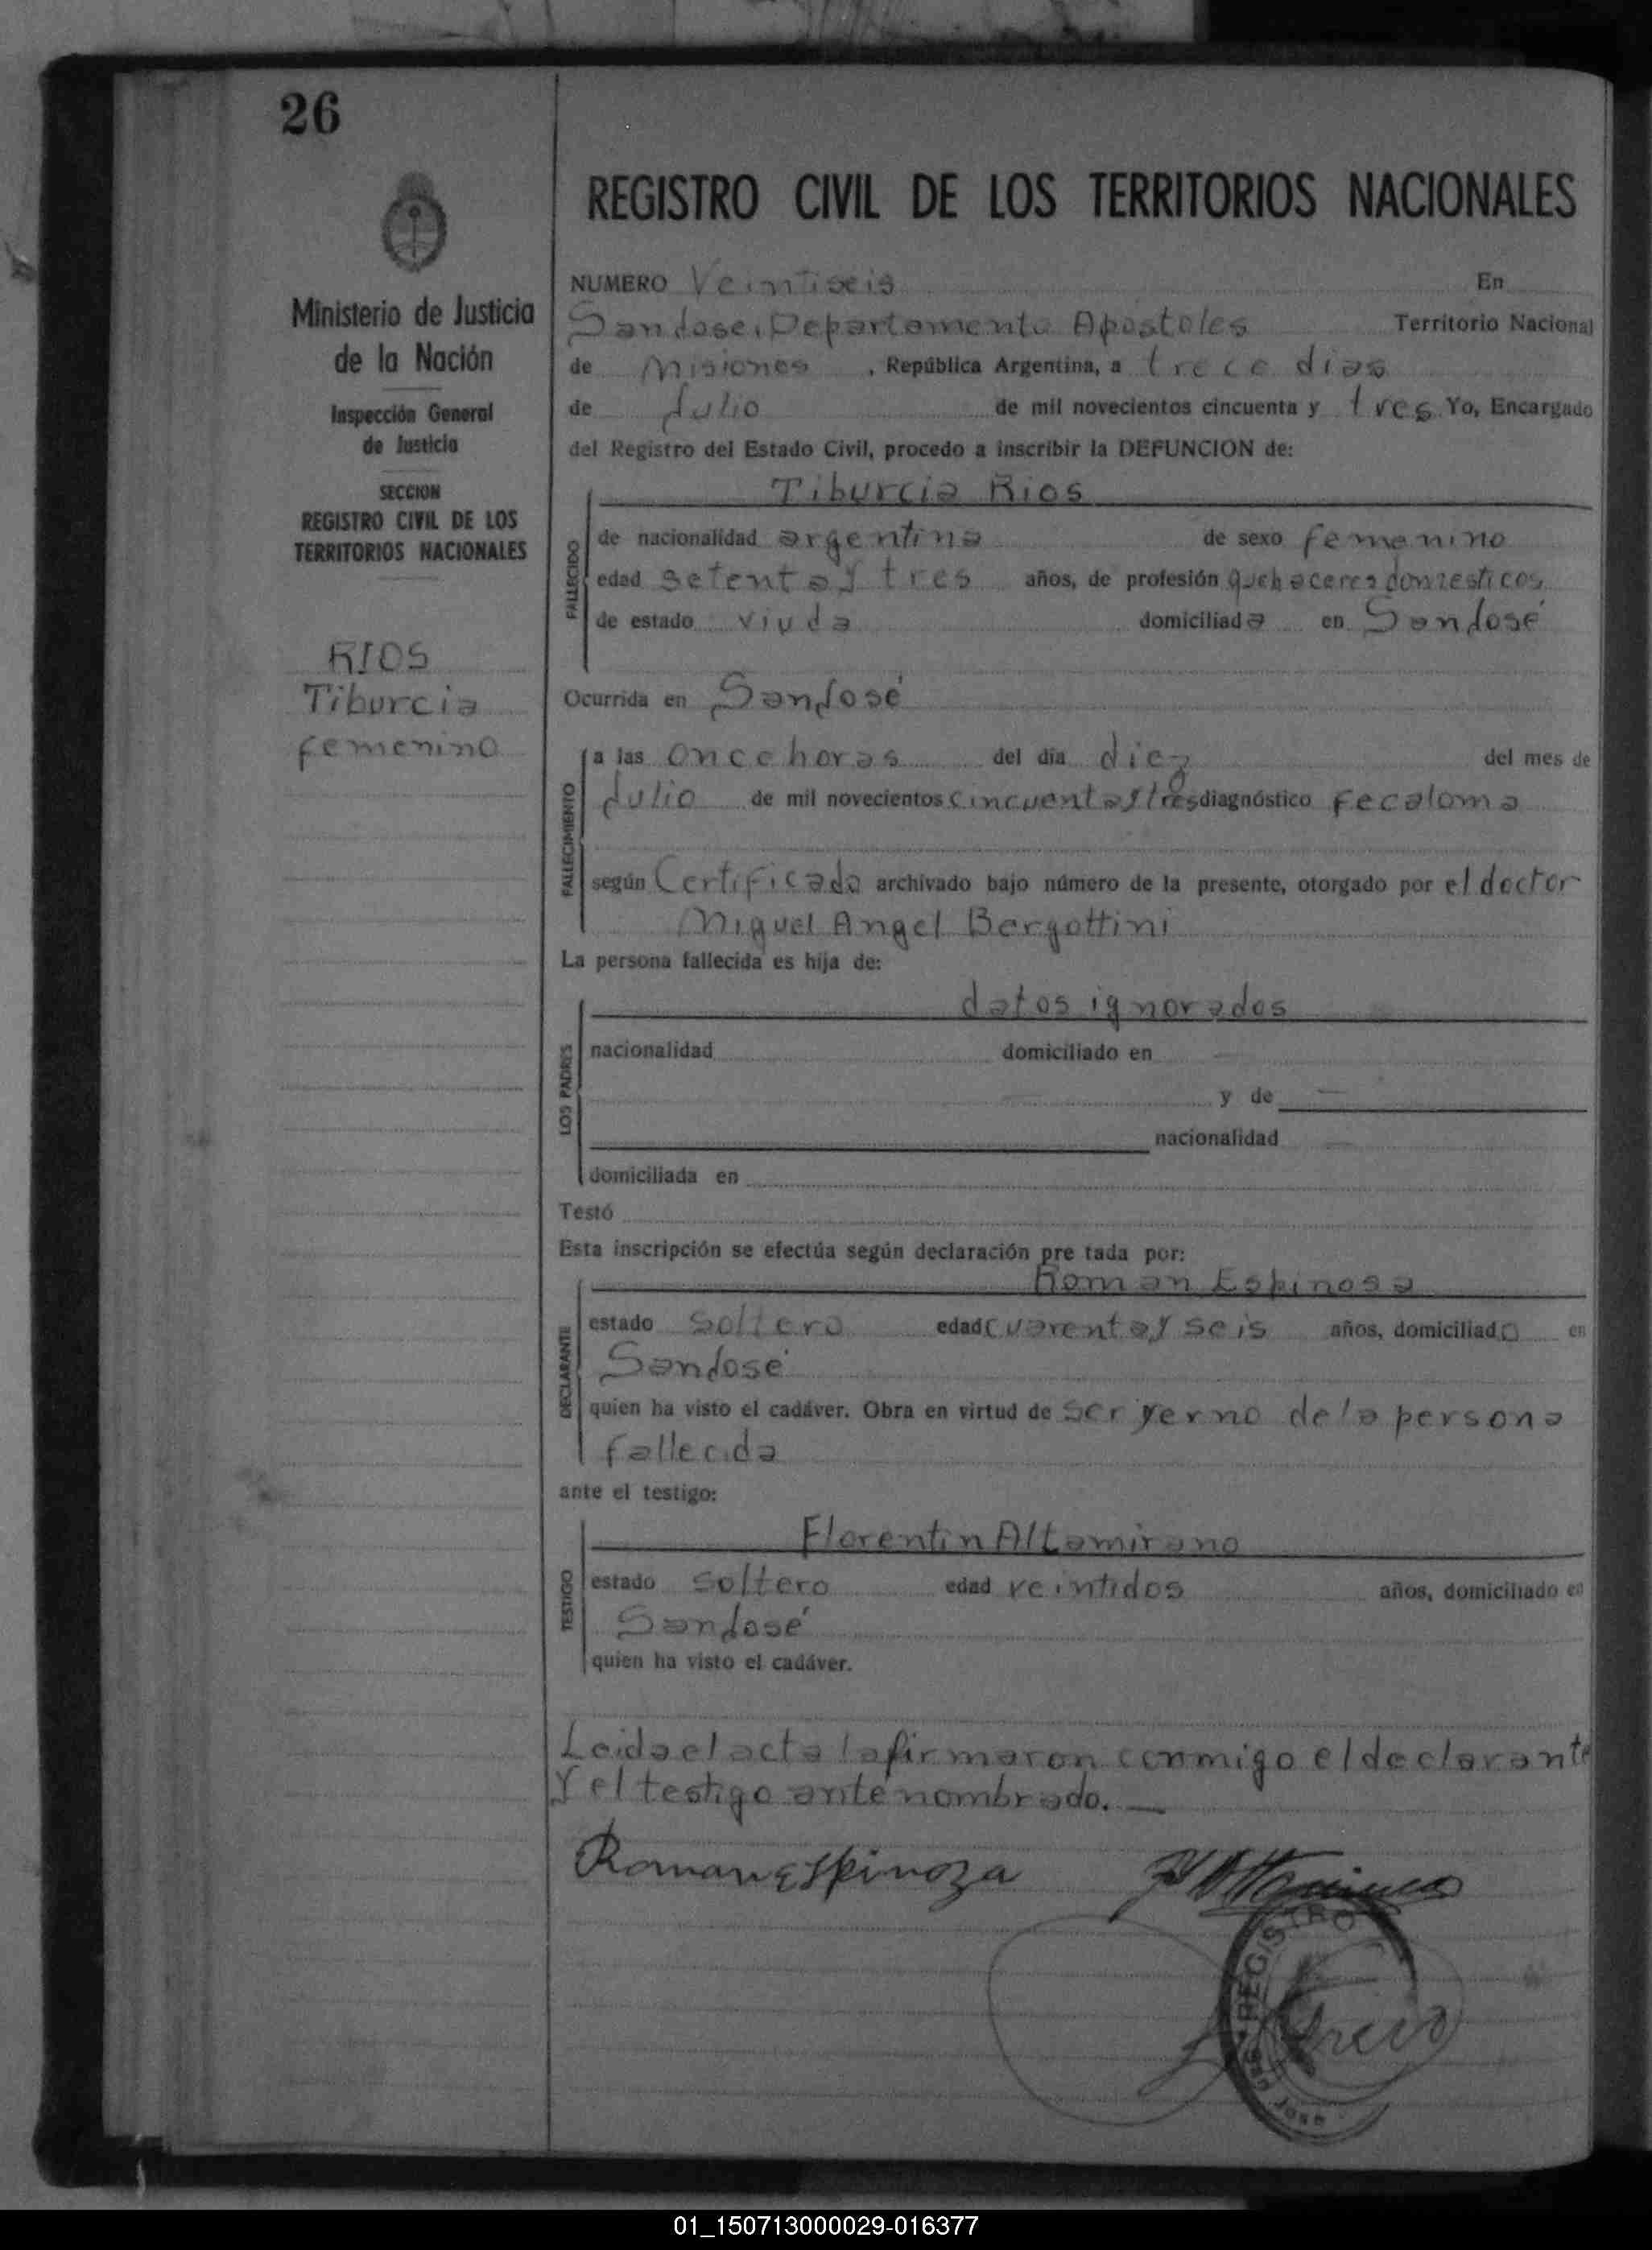 26
REGISTRO CIVIL DE LOS TERRITORIOS NACIONALES
Ministerio de Justicia
de la Nación
Inspección General
de Justicia
SECCION
REGISTRO CIVIL DE LOS
TERRITORIOS NACIONALES
RIOS
Tiburcia
femenino
NUMERO Veintiseis En
San Jose, Departamento Apostoles Territorio Nacional
de Misiones, República Argentina, a trece dias
de Julio de mil novecientos cincuenta y tres Yo, Encargado
del Registro del Estado Civil, procedo a inscribir la DEFUNCION de:
Tiburcia Rios
FALLECIDO
de nacionalidad argentina de sexo femenino
edad setenta y tres años, de profesión quehaceres domesticos
de estado viuda domiciliada en San José
Ocurrida en San José
FALLECIMIENTO
a las once horas del día diez del mes de
Julio de mil novecientos cincuenta y tres diagnóstico fecaloma
según Certificado archivado bajo número de la presente, otorgado por el doctor
Miguel Angel Bergottini
La persona fallecida es hija de:
LOS PADRES
datos ignorados
nacionalidad domiciliado en —
— y de —
nacionalidad —
domiciliada en
Testó
Esta inscripción se efectúa según declaración pre tada por:
DECLARANTE
Roman Espinosa
estado soltero edad cuarenta y seis años, domiciliado en
San José
quien ha visto el cadáver. Obra en virtud de ser yerno de la persona
fallecida
ante el testigo:
TESTIGO
Florentin Altamirano
estado soltero edad veintidos años, domiciliado en
San José
quien ha visto el cadáver.
Leida el acta la firmaron conmigo el declarante
y el testigo ante nombrado. —
Roman Espinoza
REGISTRO
01_150713000029-016377